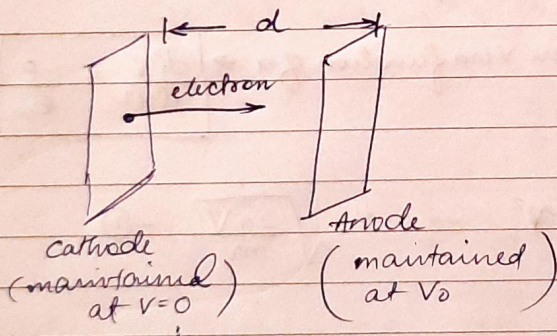 d
electron
Cathode
(maintained
at V=0)
Anode
(maintained
at V₀)